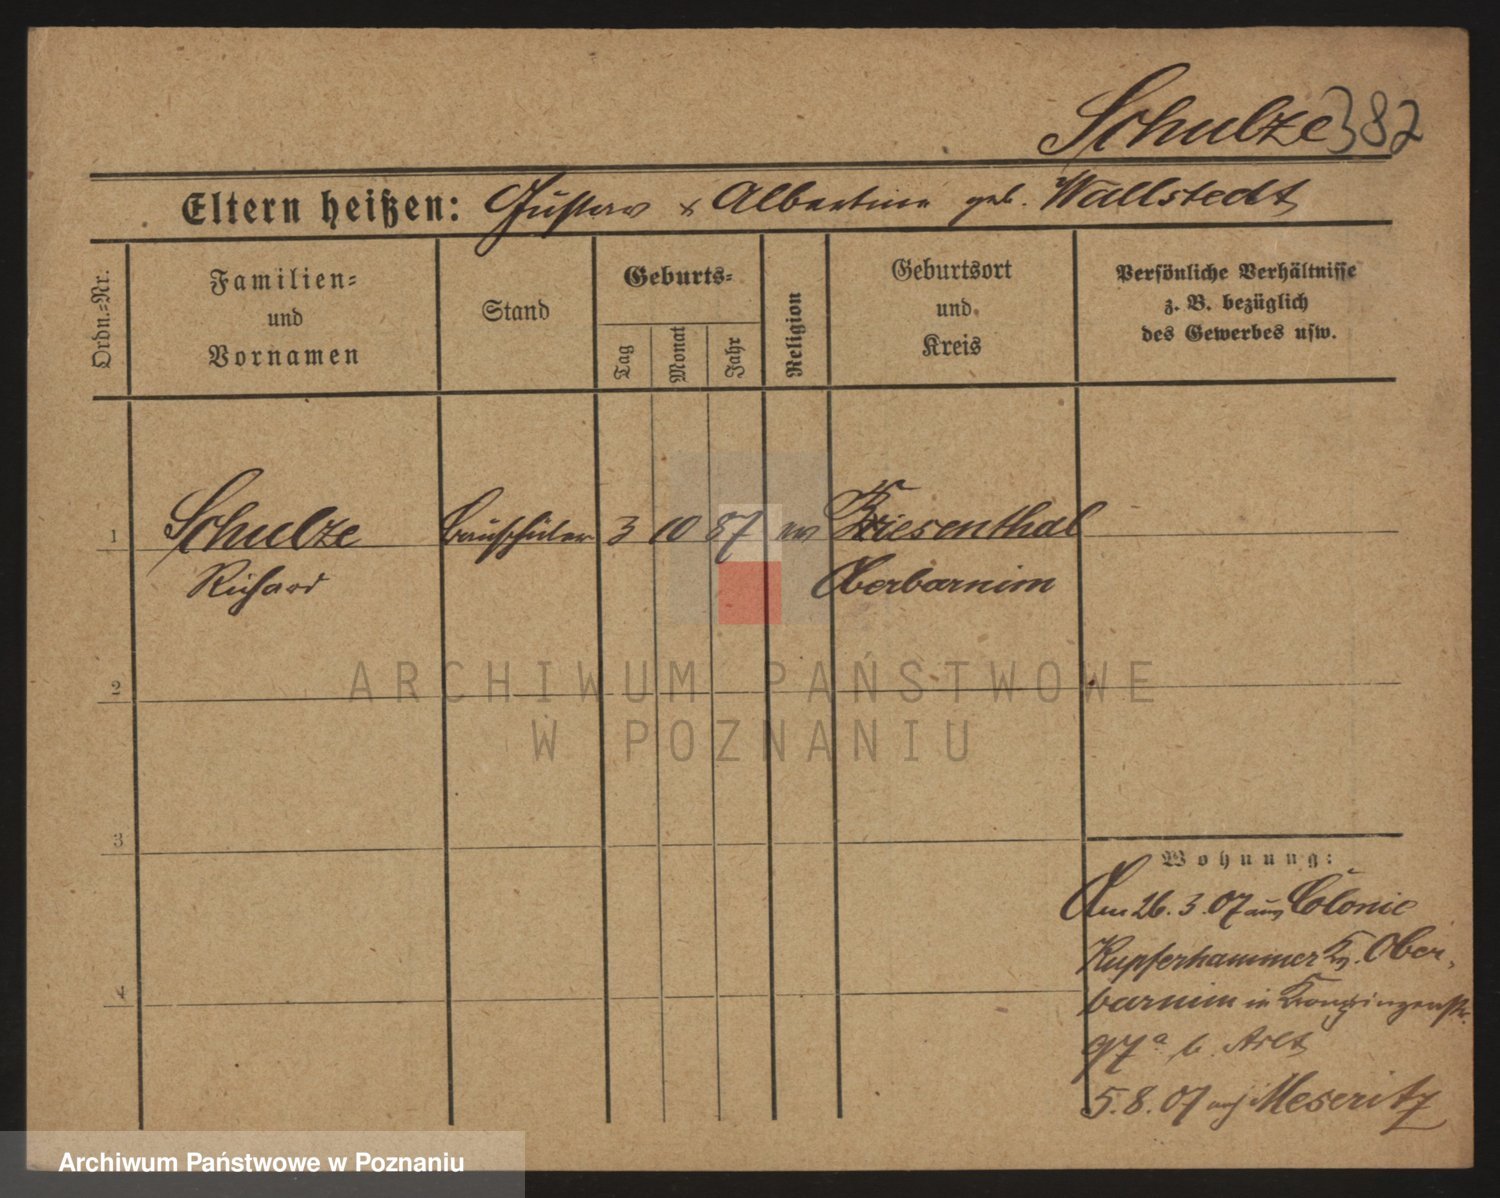 Schulze 382
Eltern heißen: Gustav & Albertine geb. Wallstedt
Ordn.-Nr.
Familien-
und
Vornamen
Stand
Geburts-
Tag
Monat
Jahr
Religion
Geburtsort
und
Kreis
Persönliche Verhältnisse
z. B. bezüglich
des Gewerbes usw.
1 Schulze Bauschüler 3 10 87 ev Briesenthal
Richard Oberbarnim
2
3
4
Wohnung:
Am 26.3.07 aus Colonie
Kupferhammer Kr. Ober-
barnim in Kronprinzenstr.
97a b. Arlt
5.8.07 nach Meseritz
ARCHIWUM PAŃSTWOWE
W POZNANIU
Archiwum Państwowe w Poznaniu